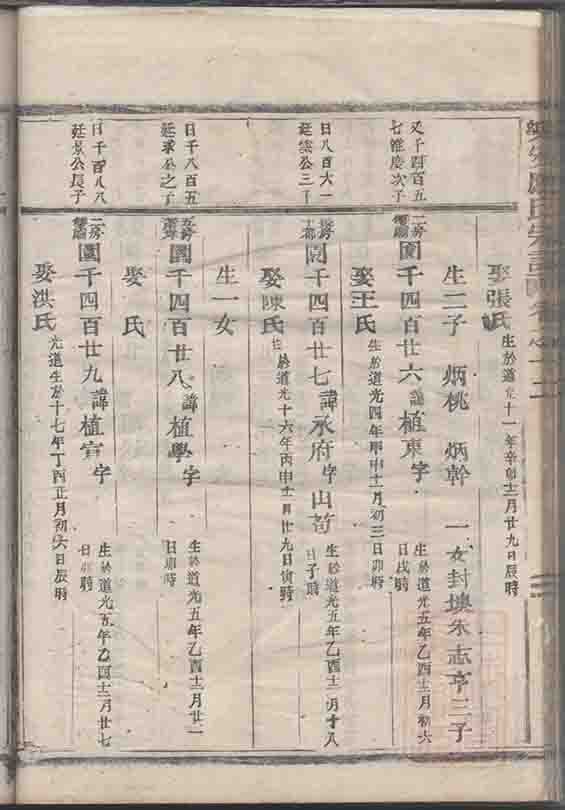 娶張氏
生於道光十一年辛卯十二月廿九日辰時
生二子 炳桃 炳幹 一女封塽朱志亨三子
又千四百五
七維慶次子
二房
園千四百廿六諱植東字
生於道光五年乙酉十二月初六
日戌時
娶王氏
生於道光四年甲申十二月初三日卯時
日八百六一
廷雲公三子
園千四百廿七諱承府字山苟
生於道光五年乙酉十二月十八
日子時
娶陳氏
生於道光十六年丙申十二月廿九日寅時
生一女
日千八百五
廷求公之子
園千四百廿八諱植學字
生於道光五年乙酉十二月廿一
日卯時
娶 氏
日千百八八
廷景公長子
二房
園千四百廿九諱植宣字
生於道光五年乙酉十二月廿七
日卯時
娶洪氏
光道生於十七年丁酉正月初六日辰時